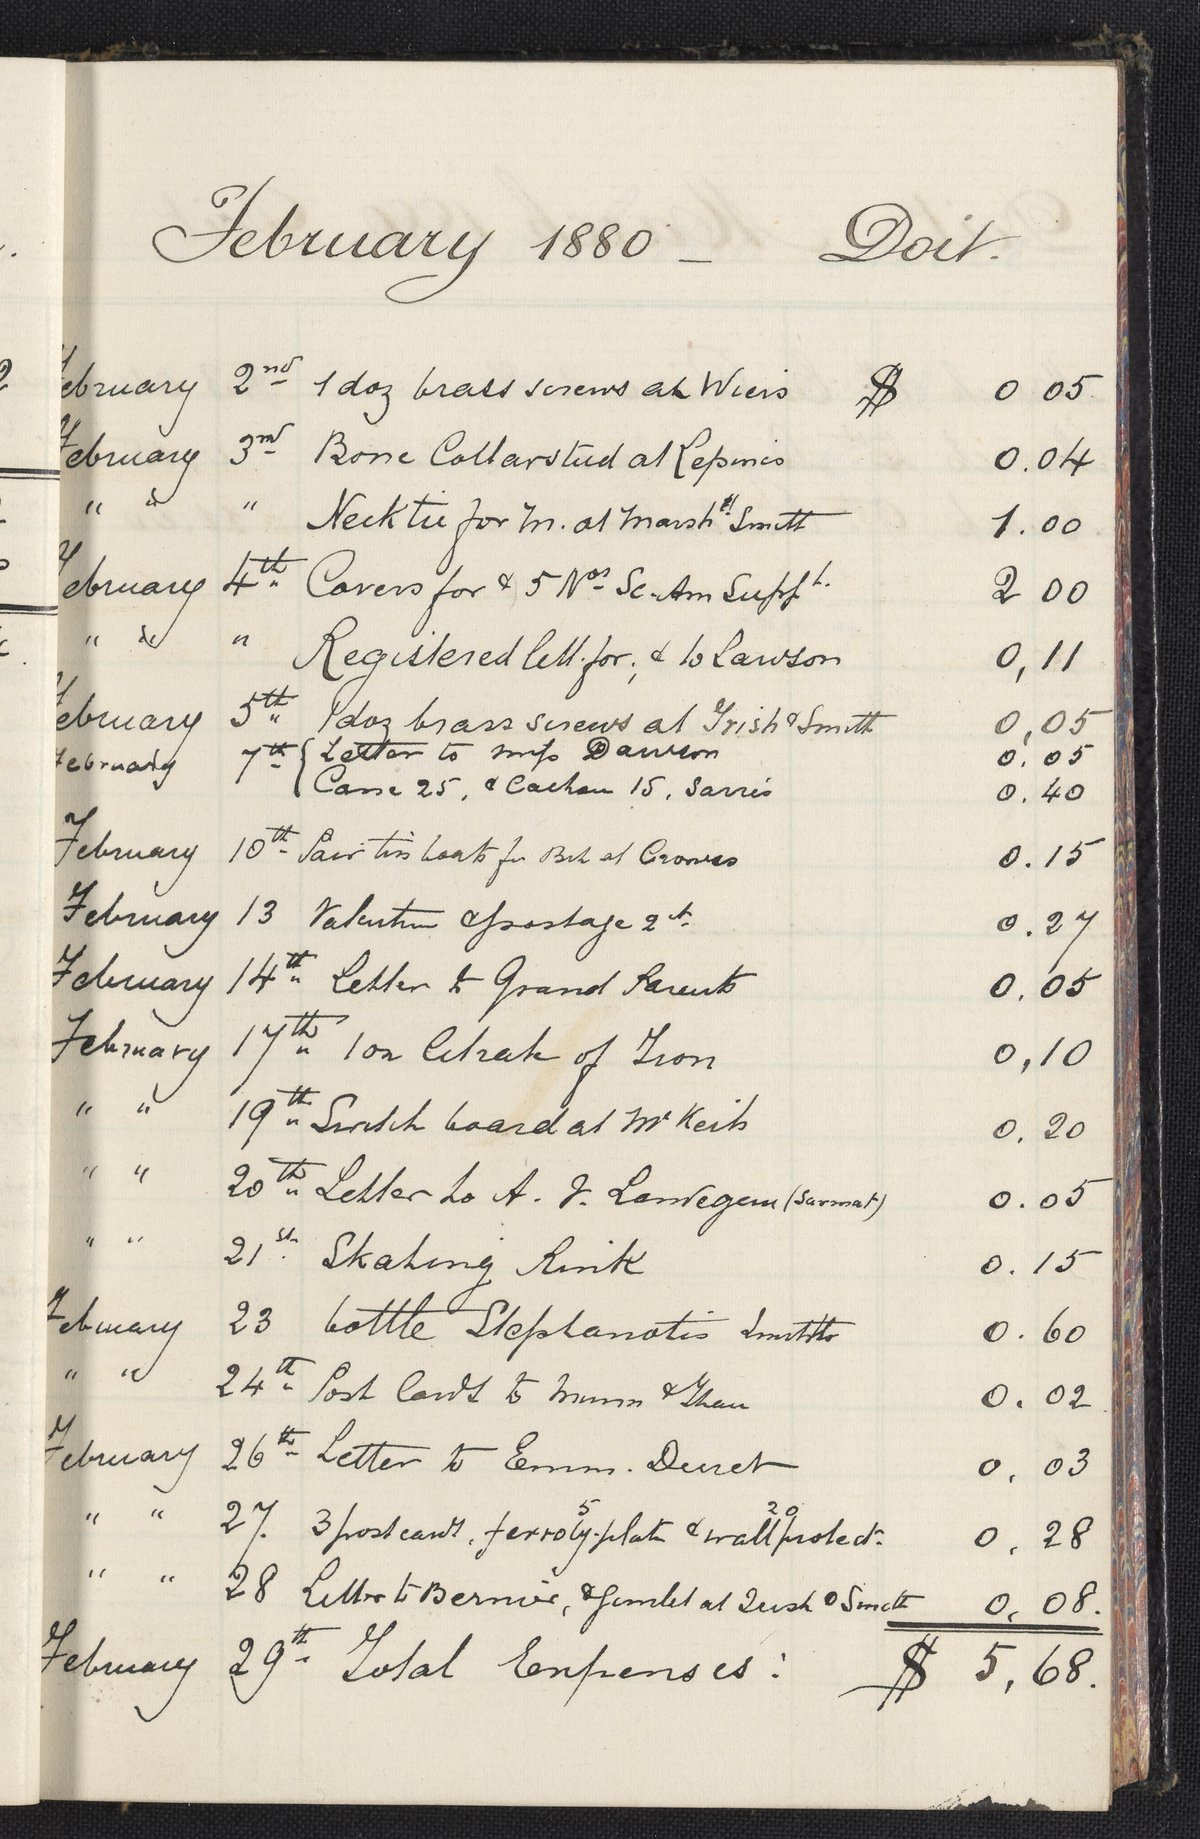 February 1880 – Doit.
February 2nd 1 doz brass screws at Wiers $ 0 05
February 3rd Bone Collarstud at Lepines 0.04
" " " Necktie for M. at Marsh & Smith 1.00
February 4th Covers for & 5 Nos Sc. Am Suppt. 2 00
" " " Registered lett. for, & to Lawson 0,11
February 5th 1 doz brass screws at Irish & Smith 0,05
February 7th { Letter to Miss Dawson 0.05
Cane 25, & Cachou 15, Sarris 0.40
February 10th Pair tin boats for at 0.15
February 13 Valentine & postage 2ct. 0.27
February 14th Letter to Grand Parents 0.05
February 17th 1 oz Citrate of Iron 0,10
" " 19th Switch board at McKeits 0.20
" " 20th Letter to A. V. Landegem (Sarmat) 0.05
" " 21st Skating Rink 0.15
February 23 bottle Stephanotis Smiths 0.60
" " 24th Post Cards to Munn & 0.02
February 26th Letter to Emm. Duret 0,03
" " 27. 3 postcards, ferroty. plate 5 & wall protect. 20 0,28
" " 28 Letter to Bernier, & Gimlet at Irish & Smith 0,08.
February 29th Total Expenses: $ 5,68.